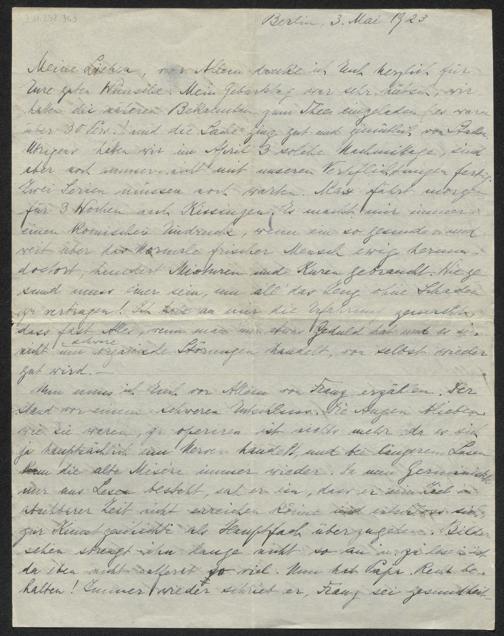 Berlin, 3. Mai 1923
Meine Lieben, vor Allem danke ich Euch herzlich für
Eure guten Wünsche. Mein Geburtstag war sehr hübsch, wir
haben die näheren Bekannten zum Thee eingeladen, es waren
über 30 Pers. und die Sache ging gut und gemütlich von Statten.
Übrigens haben wir im April 3 solche Nachmittage, sind
aber noch immer nicht mit unseren Verpflichtungen fertig.
Zwei Serien müssen noch warten. Max fährt morgen
für 3 Wochen nach Kissingen. Es macht mir immer
einen komischen Eindruck, wenn ein so gesunder und
weit über das Normale frischer Mensch ewig herum-
doktort, hundert Mixturen und Kuren gebraucht. Wie ge-
sund muss Einer sein, um all das Zeug ohne Schaden
zu vertragen! Ich habe an mir die Erfahrung gemacht,
dass fast Alles, wenn man nur etwas Geduld hat und es sich
nicht um schwere organische Störungen handelt, von selbst wieder
gut wird.
Nun muss ich Euch vor Allem von Franz erzählen. Der
stand vor einem schweren Entschluss. Die Augen blieben
wie sie waren, zu operieren ist nichts mehr, da es sich
ja hauptsächlich um Nerven handelt, und bei längerem Lesen
kam die alte Misère immer wieder. Da nun Germanistik
nur aus Lesen besteht, sah er ein, dass er sein Ziel in
absehbarer Zeit nicht erreichen könne und entschloss sich
zur Kunstgeschichte als Hauptfach überzugehen. Bilder
sehen strengt ihn lange nicht so an und zu lesen ist
da eben nicht so viel. Nun hat Papa Recht be-
halten! Immer wieder schrieb er, Franz sei